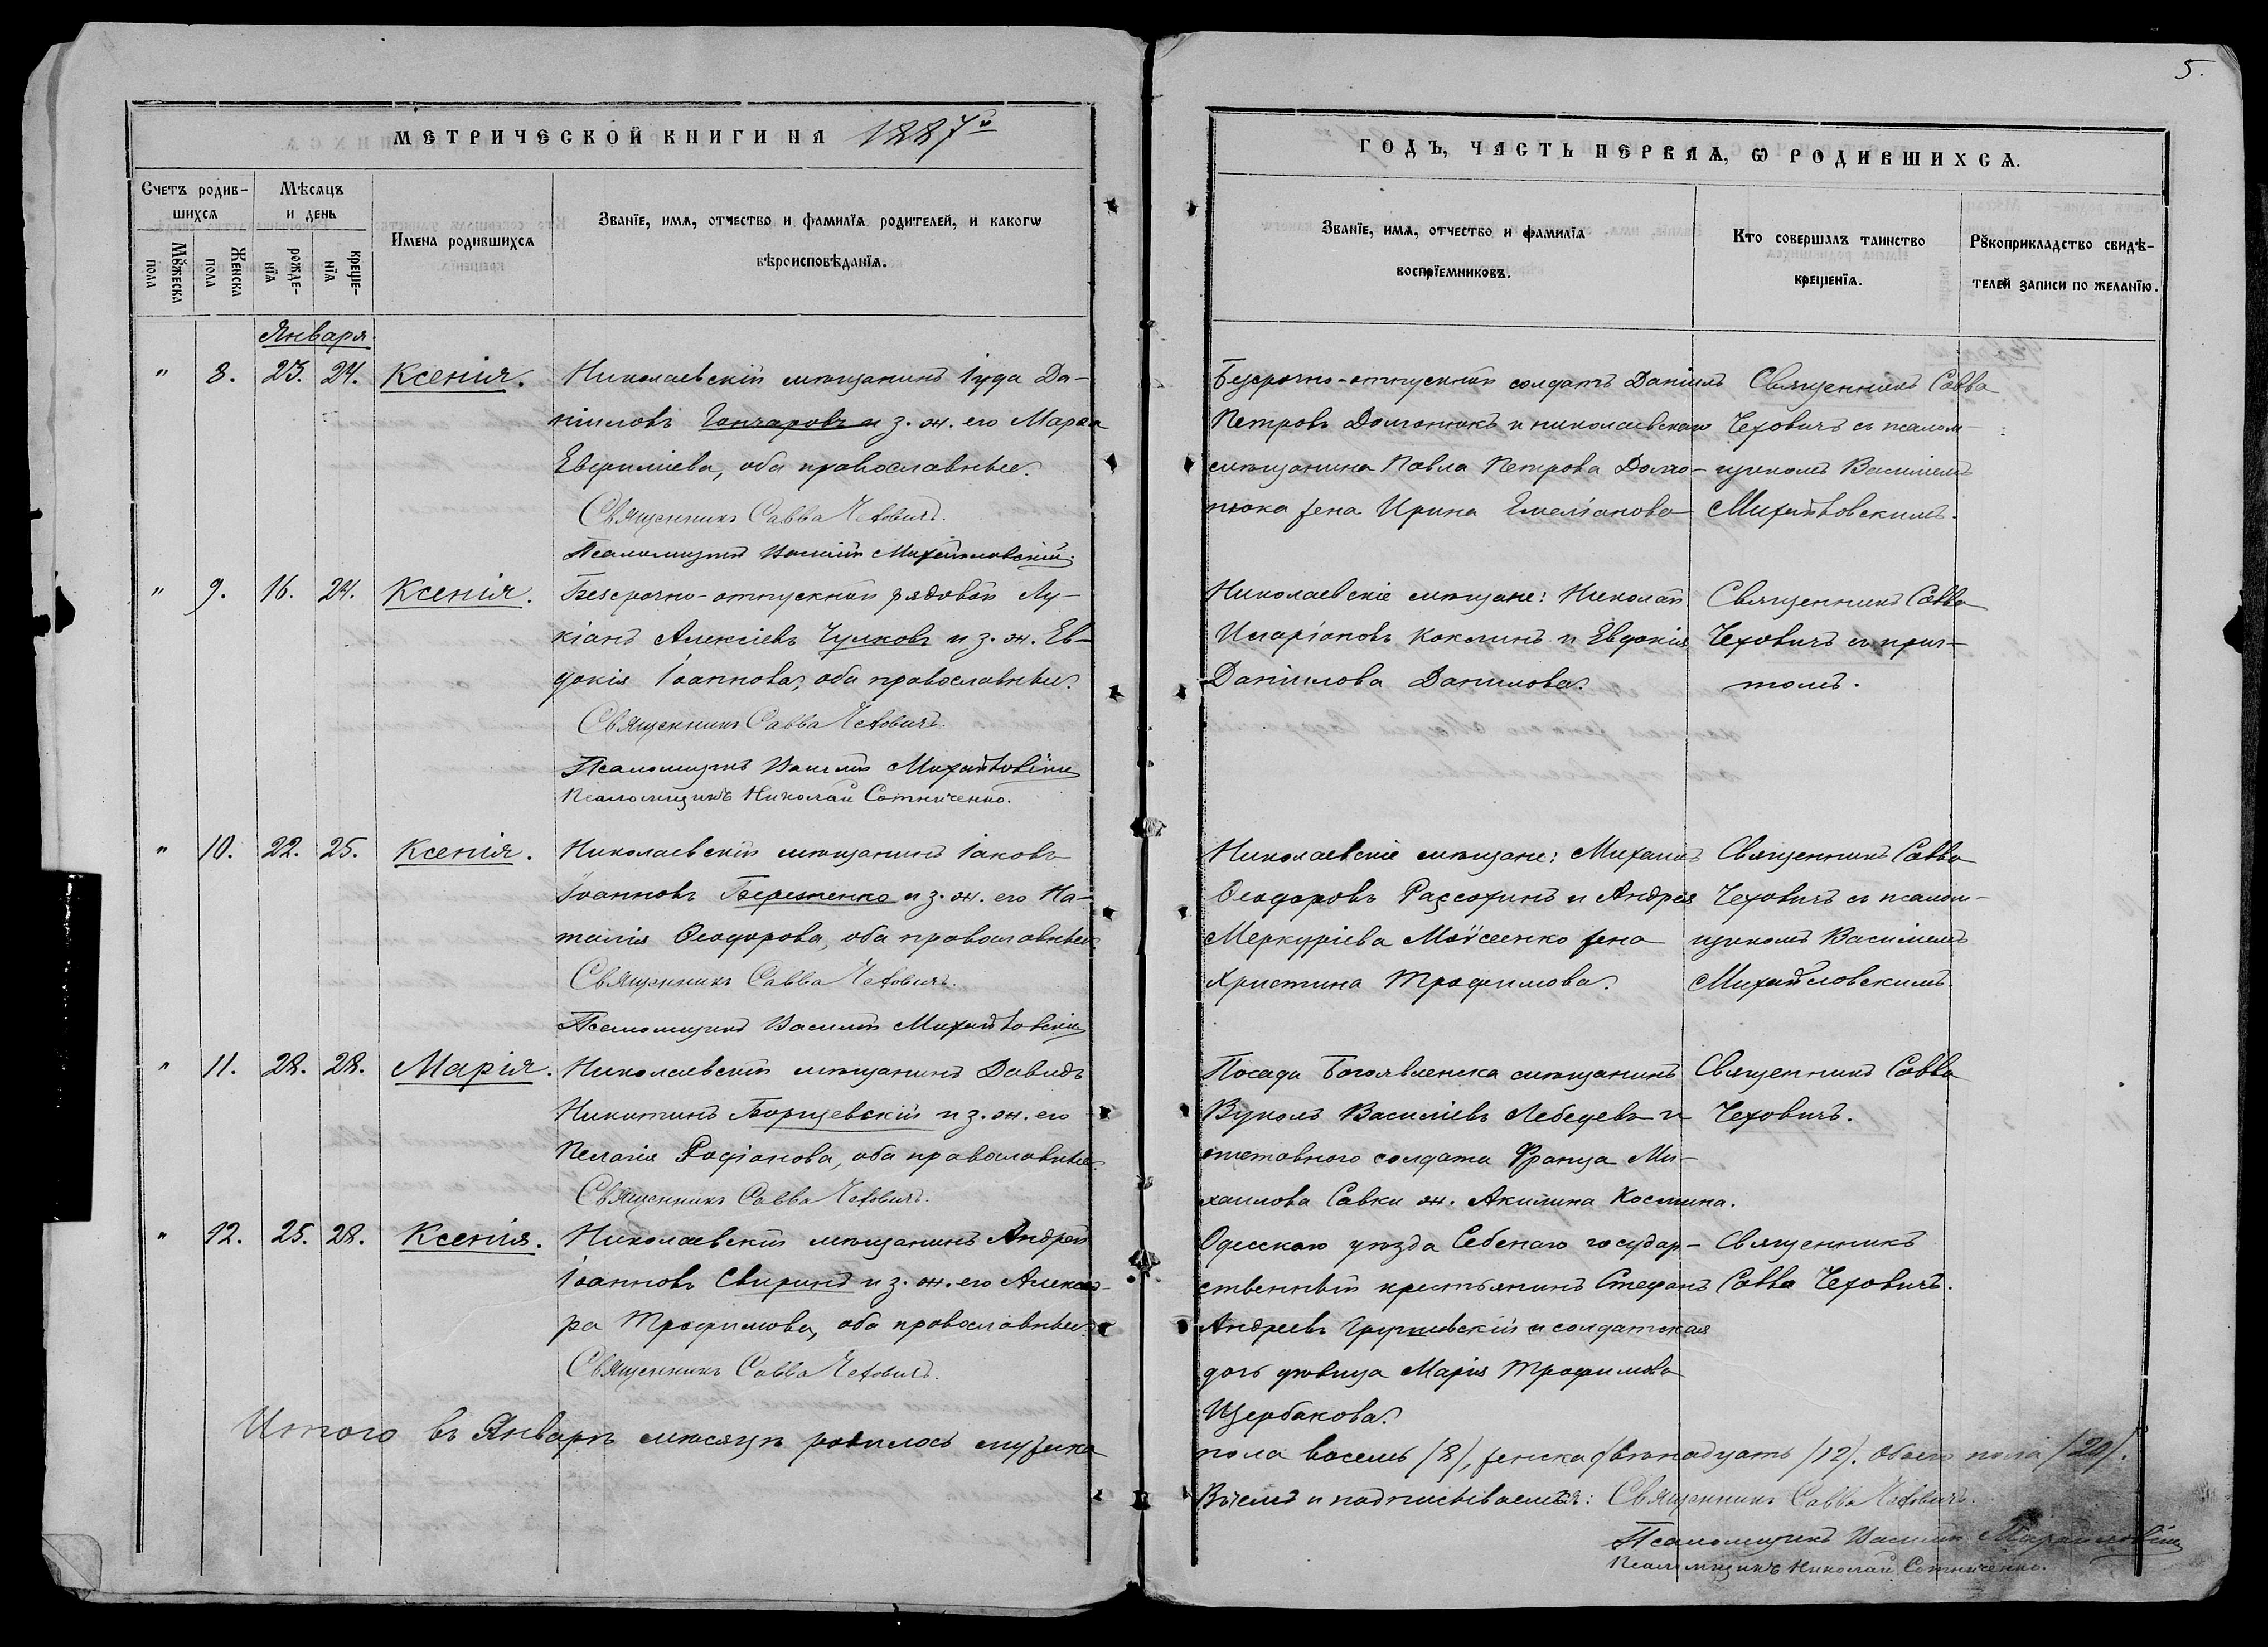 5.
МЕТРИЧЕСКОЙ КНИГИ НА 1887й
ГОДЪ, ЧАСТЬ ПЕРВАЯ, Ѡ РОДИВШИХСѦ.
Счетъ родив-
шихсѧ
Мꙋжеска
пола
Женска
пола
Мѣсѧцъ
и день
рожде-
нїѧ
креще-
нїѧ
Имена родившихсѧ
Званїе, имѧ, отчество и фамилїѧ родителей, и какогѡ
вѣроисповѣданїѧ.
Званїе, имѧ, отчество и фамилїѧ
воспрїемниковъ.
Кто совершалъ таинство
крещенїѧ.
Рꙋкоприкладство свидѣ-
телей записи по желанїю.
Января
" 8. 23. 24. Ксенія.
Николаевскій мѣщанинъ Іуда Да-
ніиловъ Гончаровъ и з. ж. его Марѳа
Евфиміева, оба православные.
Священникъ Савва Чеховичъ.
Псаломщикъ Василій Михайловскій.
Безсрочно-отпускной солдатъ Даніилъ
Петровъ Долгонюкъ и николаевскаго
мѣщанина Павла Петрова Долго-
нюка жена Ирина Емеліанова
Священникъ Савва
Чеховичъ съ псалом-
щикомъ Василіемъ
Михайловскимъ.
" 9. 16. 24. Ксенія.
Безсрочно-отпускной рядовой Лу-
кіанъ Алексіевъ Чулковъ и з. ж. Ев-
докія Іоаннова, оба православные.
Священникъ Савва Чеховичъ.
Псаломщикъ Василій Михайловскій
Псаломщикъ Николай Сотниченко.
Николаевскіе мѣщане: Николай
Иларіоновъ Коклинъ и Евдокія
Даніилова Данилова.
Священникъ Савва
Чеховичъ съ прич-
томъ.
" 10. 22. 25. Ксенія.
Николаевскій мѣщанинъ Іаковъ
Іоанновъ Береженко и з. ж. его На-
талія Ѳеодорова, оба православные
Священникъ Савва Чеховичъ.
Псаломщикъ Василій Михайловскій
Николаевскіе мѣщане: Михаилъ
Ѳеодоровъ Рассохинъ и Андрея
Меркуріева Моѵсеенко жена
Христина Трофимова.
Священникъ Савва
Чеховичъ съ псалом-
щикомъ Василіемъ
Михайловскимъ.
" 11. 28. 28. Марія.
Николаевскій мѣщанинъ Давидъ
Никитинъ Борщевскій и з. ж. его
Пелагія Родіонова, оба православные
Священникъ Савва Чеховичъ.
Посада Богоявленска мѣщанинъ
Вуколъ Василіевъ Лебедевъ и
отставного солдата Франца Ми-
хаилова Савки ж. Акилина Космина.
Священникъ Савва
Чеховичъ.
" 12. 25. 28. Ксенія.
Николаевскій мѣщанинъ Андрей
Іоанновъ Свиринъ и з. ж. его Алексан-
ра Трофимова, оба православные
Священникъ Савва Чеховичъ.
Одесскаго уѣзда Себенаго государ-
ственный крестьянинъ Стефанъ
Андреевъ и солдатская
дочь дѣвица Марія Трофимова
Щербакова.
Священникъ
Савва Чеховичъ.
Итого въ Январѣ мѣсяцѣ родилось мужска
пола восемь /8/, женска двѣнадцать /12/. Обоего пола /20/.
Въ чемъ и подписываемся: Священникъ Савва Чеховичъ.
Псаломщикъ Василій Михайловскій
Псаломщикъ Николай Сотниченко.